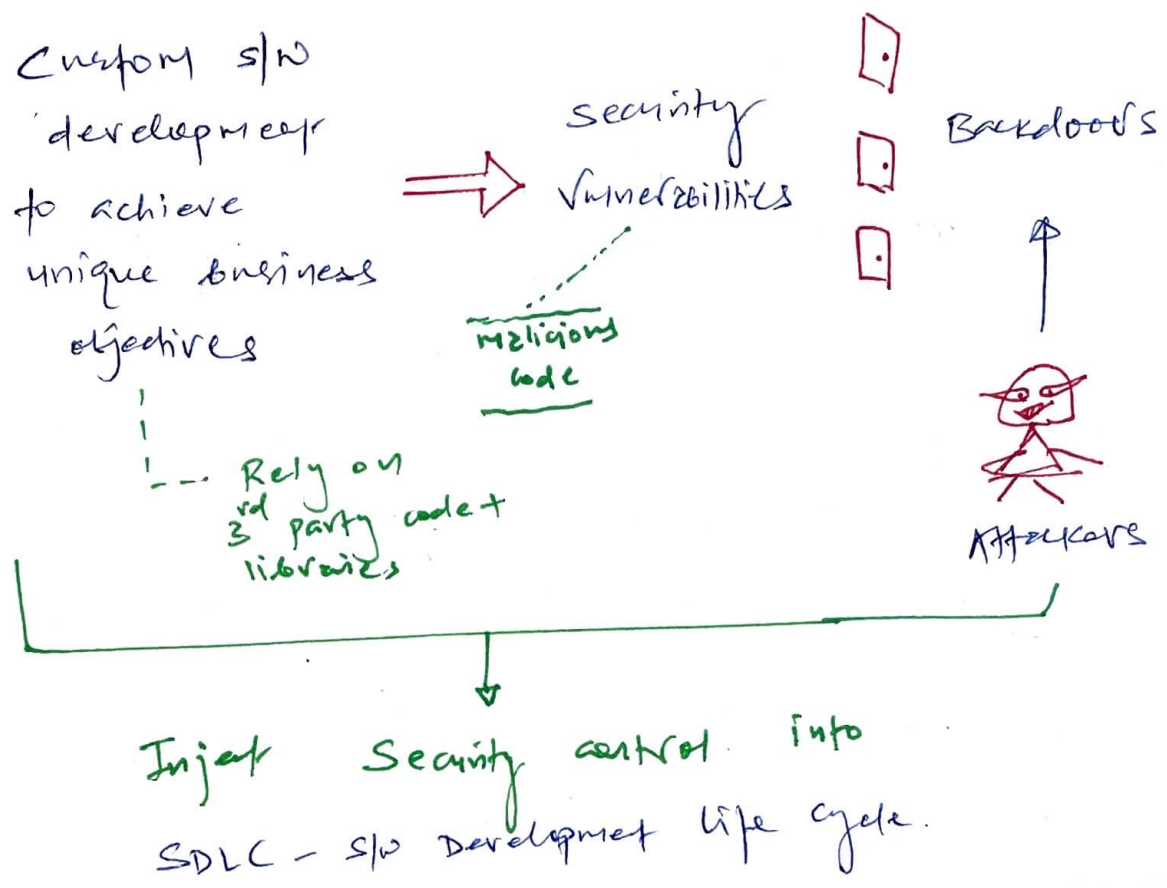 Custom s/w
development
to achieve
unique business
objectives
Security
Vulnerabilities
Backdoors
malicious
code
Rely on
3rd party code +
libraries
Attackers
Inject Security control into
SDLC - S/W Development Life Cycle.